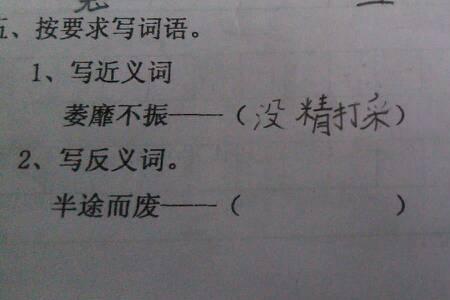 五、按要求写词语。
1、写近义词
萎靡不振——（没精打采）
2、写反义词。
半途而废——（ ）